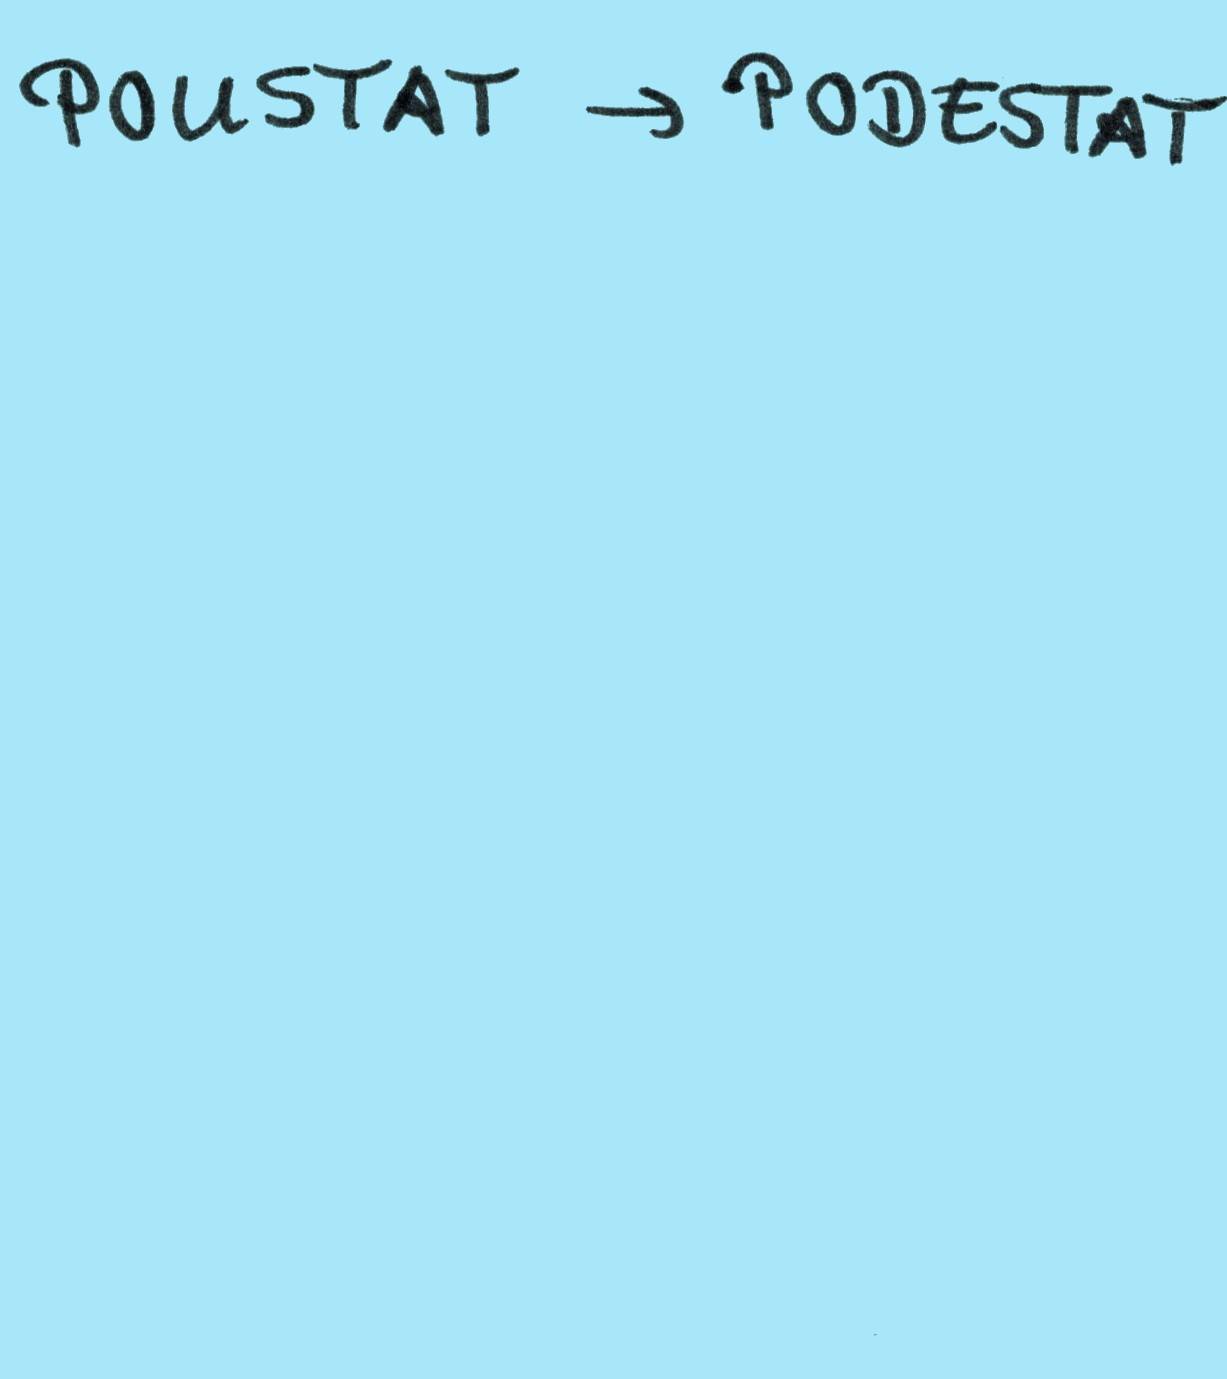 POUSTAT → PODESTAT